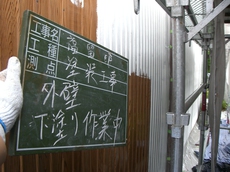 工事名
工種 塗装工事
測点
外壁
下塗り作業中